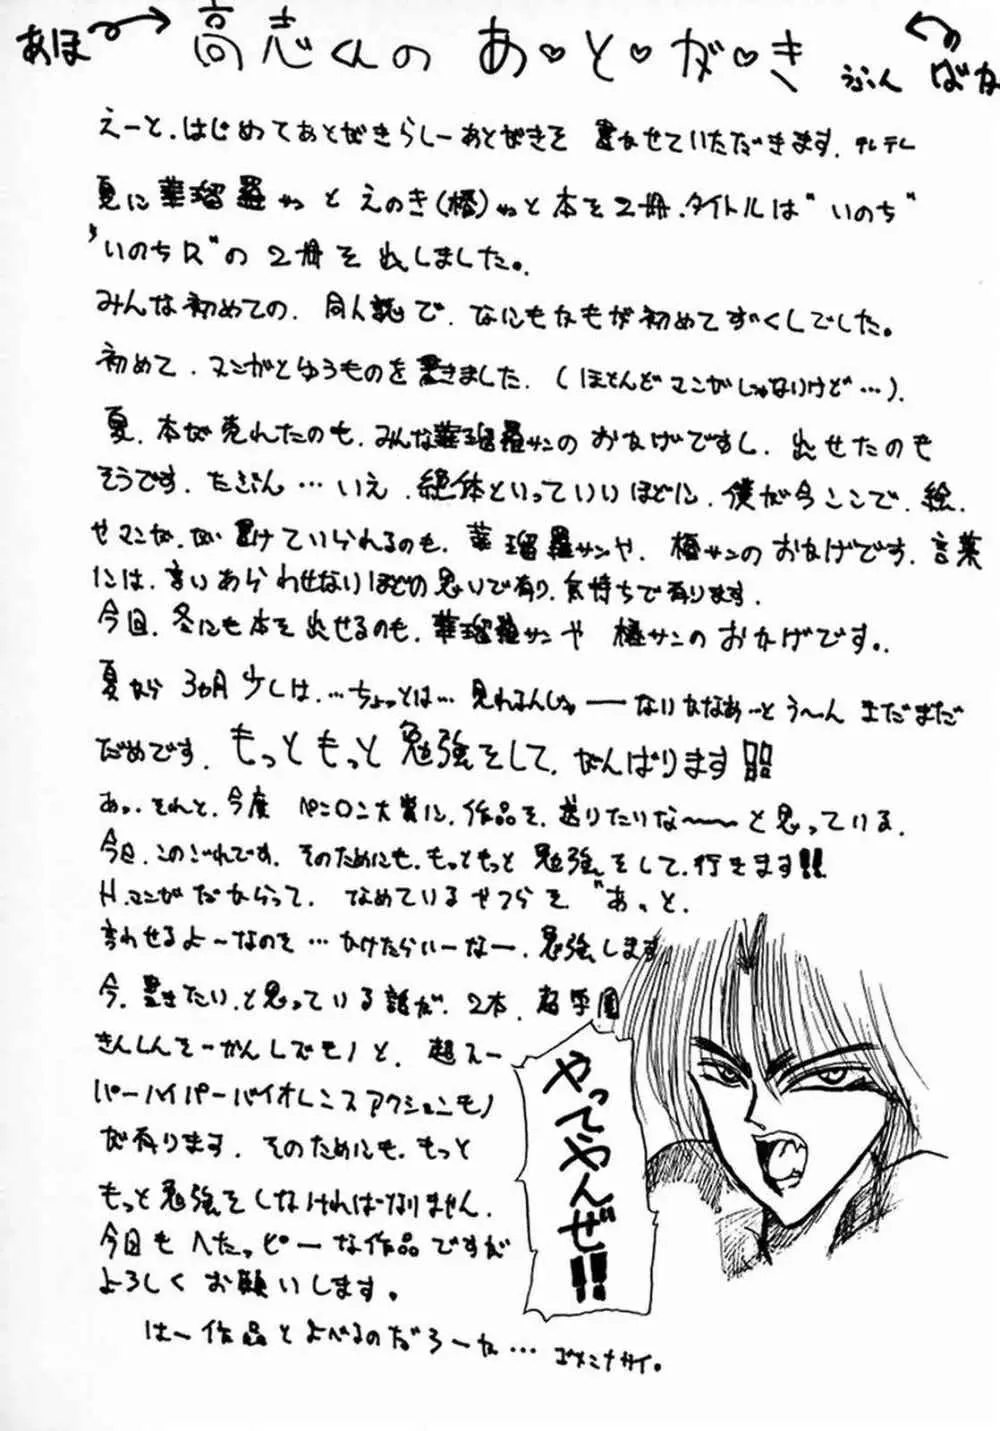 あほ 高志くんの あ・と・が・き うぷん ばか
えーと、はじめてあとがきらしーあとがきを 書かせていただきます、テレテレ
夏に華瑠羅サンと えのき(榎)サンと本を2冊、タイトルは"いのち"
"いのちR"の 2冊を出しました。
みんな初めての、同人誌で、なにもかもが初めてずくしでした。
初めて、マンガとゆうものを書きました、(ほとんどマンガじゃないけど…)、
夏、本が売れたのも、みんな華瑠羅サンのおかげですし、出せたのも
そうです、たぶん…いえ、絶体といっていいほどに、僕が今ここで、絵、
やマンガ、が書けていられるのも、華瑠羅サンや、榎サンのおかげです、言葉
には、言いあらわせないほどの思いで有り、気持ちで有ります、
今回、冬にも本を出せるのも、華瑠羅サンや 榎サンのおかげです。
夏から 3ヵ月少しは、…ちょっとは…見れるんじゃーーないかなあーとう〜ん まだまだ
だめです、もっともっと勉強をして、がんばります!!
あっ、それと、今度 ペンロン大賞に、作品を、送りたいな〜〜と思っている、
今日、このごれです、そのためにも、もっともっと 勉強をして、行きます!!
H、マンガだからって、なめているやつらを"あっと、
言わせるよ〜なのを…かけたらいーなー、勉強します
今、書きたい、と思っている話が、2本、超学園
きんしんそーかんしでモノと、超スー
パーハイパーバイオレンスアクションモノ
が有ります、そのためにも、もっと
もっと勉強をしなければなりません、
今回もヘたっピーな作品ですが
よろしくお願いします。
は〜作品とよべるのだろーか… ゴメンナサイ。
やってやんぜ!!